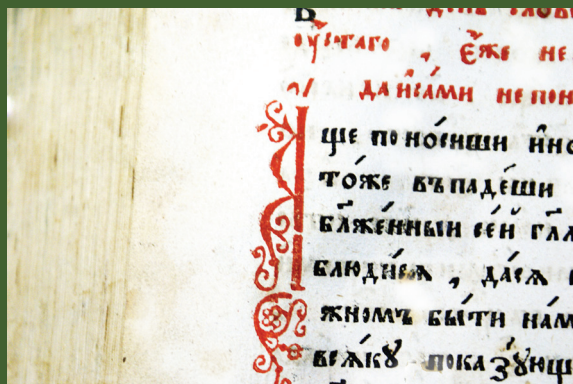 оу҆стаго , є҆́же не
да и҆са́ми не пон
ще поно́сиши и҆но
то́же въпаде́ши
бл҃же́нныи сеи҆ гл҃а
блюди́сѧ , да́сѧ
жномъ бы́ти на́м
всѧ́кꙋ пока зꙋ́ющ